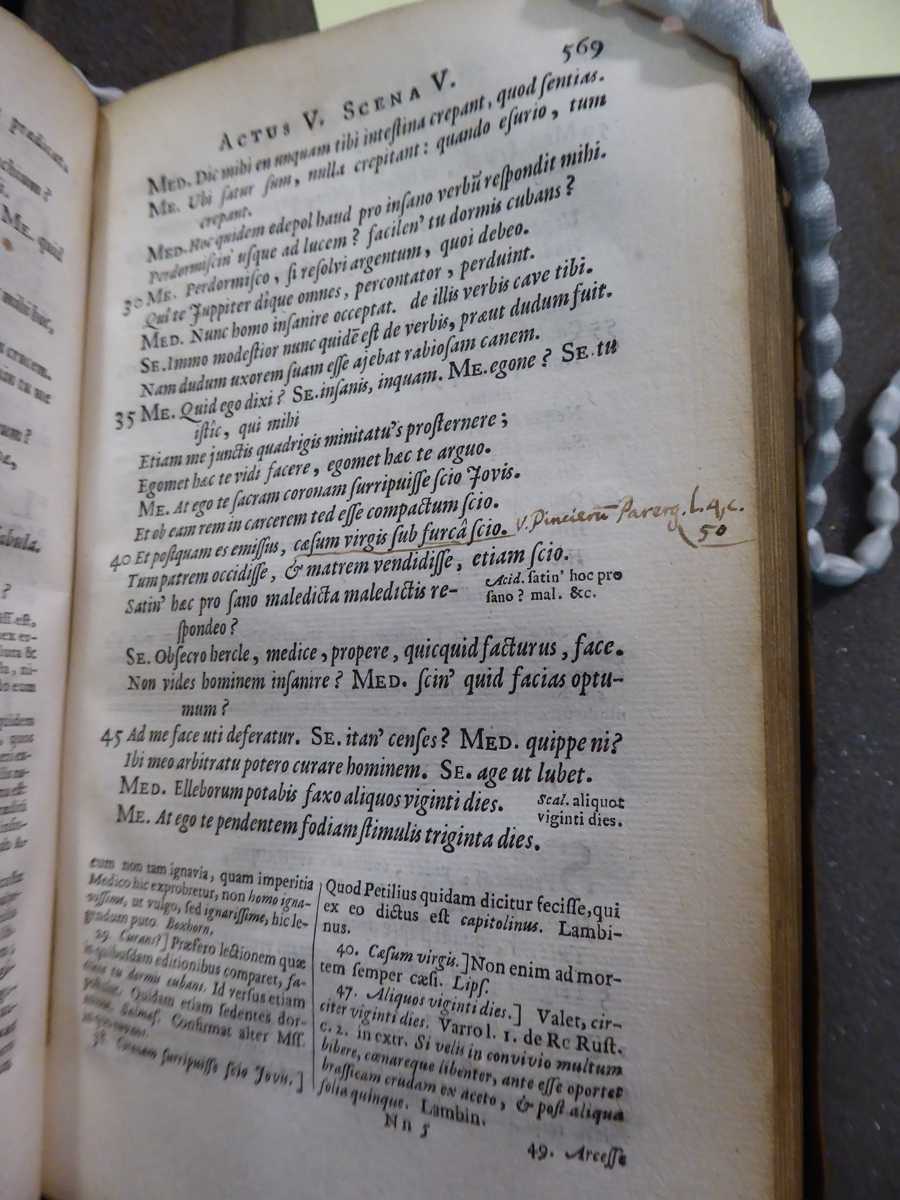 569
ACTUS V. SCENA V.
MED. Dic mihi en unquam tibi inteſtina crepant, quod ſentias.
ME. Ubi ſatur ſum, nulla crepitant: quando eſurio, tum
crepant.
MED. Hoc quidem edepol haud pro inſano verbũ reſpondit mihi.
Perdormiſcin' uſque ad lucem? facilen' tu dormis cubans?
30 ME. Perdormiſco, ſi reſolvi argentum, quoi debeo.
Qui te Juppiter dîque omnes, percontator, perduint.
MED. Nunc homo inſanire occeptat. de illis verbis cave tibi.
SE. Immo modeſtior nunc quidē eſt de verbis, præut dudum fuit.
Nam dudum uxorem ſuam eſſe ajebat rabioſam canem.
35 ME. Quid ego dixi? SE. inſanis, inquam. ME. egone? SE. tu
iſtic, qui mihi
Etiam me junctis quadrigis minitatu's proſternere;
Egomet hæc te vidi facere, egomet hæc te arguo.
ME. At ego te ſacram coronam ſurripuiſſe ſcio Jovis.
Et ob eam rem in carcerem ted eſſe compactum ſcio.
40 Et poſtquam es emiſſus, cæſum virgis ſub furcâ ſcio. V. Pincierū Parerg. l. 4, c.
50
Tum patrem occidiſſe, & matrem vendidiſſe, etiam ſcio.
Satin' hæc pro ſano maledicta maledictis re-
ſpondeo?
Acid. ſatin' hoc pro
ſano? mal. &c.
SE. Obſecro hercle, medice, propere, quicquid facturus, face.
Non vides hominem inſanire? MED. ſcin' quid facias optu-
mum?
45 Ad me face uti deferatur. SE. itan' cenſes? MED. quippe ni?
Ibi meo arbitratu potero curare hominem. SE. age ut lubet.
MED. Elleborum potabis faxo aliquos viginti dies.
Scal. aliquot
viginti dies.
ME. At ego te pendentem fodiam ſtimulis triginta dies.
eum non tam ignavia, quam imperitia
Medico hic exprobretur, non homo igna-
viſſime, ut vulgo, ſed ignariſſime, hic le-
gendum puto. Boxhorn.
29. Curans?] Præfero lectionem quæ
in quibuſdam editionibus comparet, fa-
cilen tu dormis cubans. Id verſus etiam
Quidam etiam ſedentes dor-
Salmaſ. Confirmat alter Mſſ.
38. Coronam ſurripuiſſe ſcio Jovis.]
Quod Petilius quidam dicitur feciſſe, qui
ex eo dictus eſt capitolinus. Lambi-
nus.
40. Cæſum virgis.] Non enim ad mor-
tem ſemper cæſi. Lipſ.
47. Aliquos viginti dies.] Valet, cir-
citer viginti dies. Varro l. 1. de Re Ruſt.
c. 2. in extr. Si velis in convivio multum
bibere, cœnareque libenter, ante eſſe oportet
braſſicam crudam ex aceto, & poſt aliqua
folia quinque. Lambin.
Nn 5
49. Arceſſe